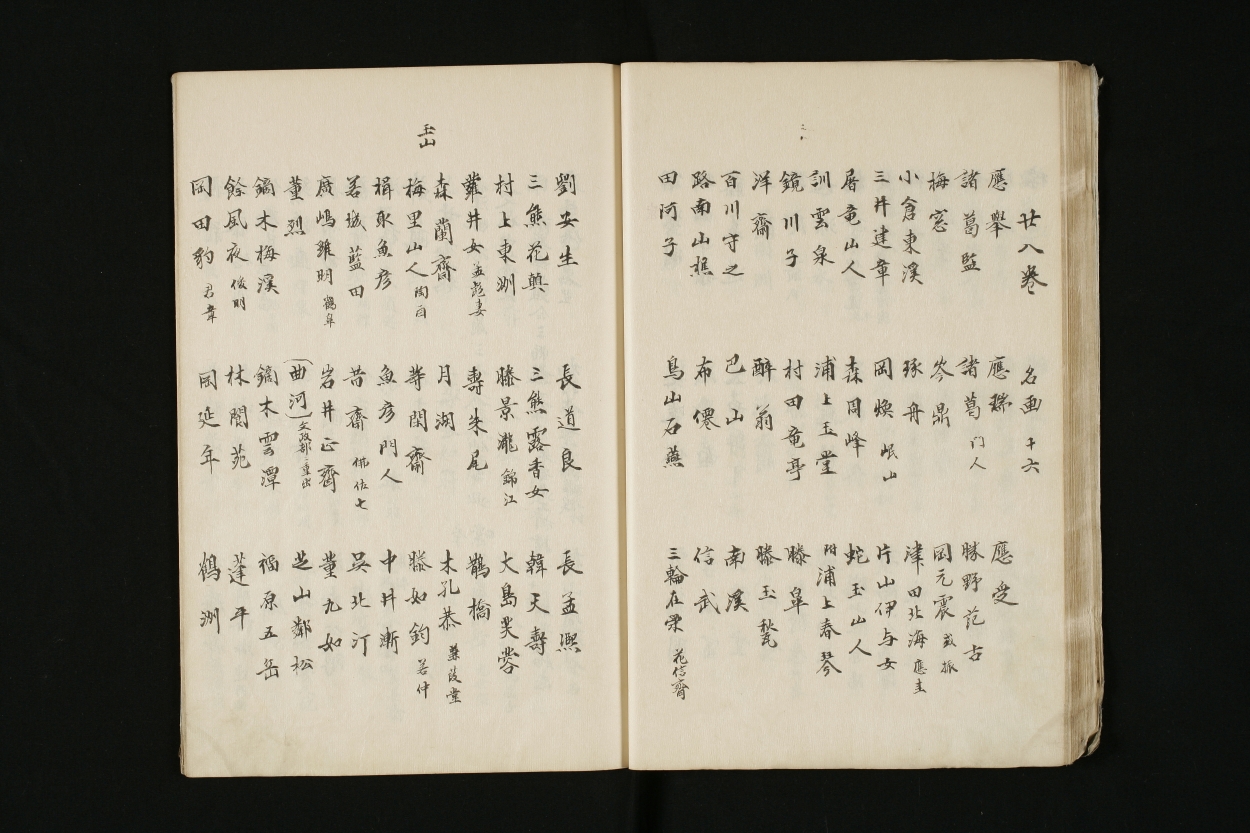 廿八巻 名画 十六
應擧 應瑞 應受
諸葛監 諸葛門人 勝野范古
梅窓 岑鼎 岡元震
小倉東溪 琢舟 津田北海 應圭
三井達章 岡煥 岷山 片山伊与女
屠竜山人 森周峰 蛇玉山人
訓雲泉 浦上玉堂 附浦上春琴
鏡川子 村田竜亭 滕皐
洋齋 醉翁 滕玉
百川守之 巴山 南溪
路南山樵 布僊 信武
田河子 鳥山石燕 三輪在栄 花信齋
玉山
劉安生 長道良 長孟熈
三熊花顛 三熊露香女 韓天壽
村上東洲 滕景瀧 錦江 大島芙蓉
葦井女 孟彪妻 壽朱尾 鵲橋
森蘭齋 月湖 木孔恭 蒹葭堂
梅里山人 等閑齋 滕如鈞 若仲
楫取魚彦 魚彦門人 中井漸
若城藍田 昔齋 佛佐七 吳北汀
廣嶋雅明 鶴阜 岩井正齋 董九如
董烈 (曲河) 文政部重出 芝山鄰松
鏑木梅溪 鏑木雲潭 福原五岳
餘夙夜 俊明 林閬苑 蓬平
岡田豹 君章 岡延年 鶴洲